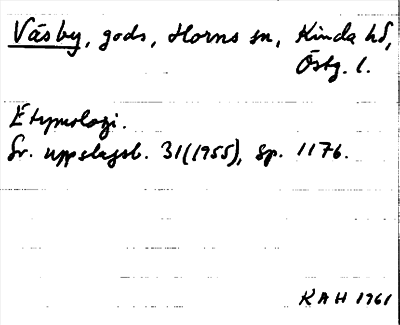 Väsby, gods, Horns sn, Kinda hd,
Östg. l.
Etymologi.
Sv. uppslagsb. 31(1955), sp. 1176.
KAH 1961